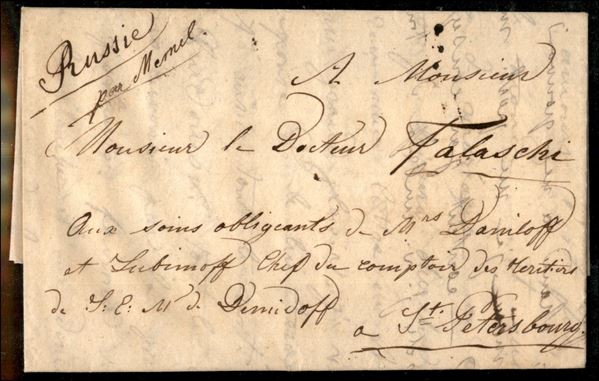 Russie
par Memel.
A Monsieur
Monsieur le Docteur Falaschi
Aux soins obligeants de Mrs Daniloff
et Lubimoff Chef du comptoir des Heritiers
de S: E: Mr de Demidoff
a St. Petersbourg.